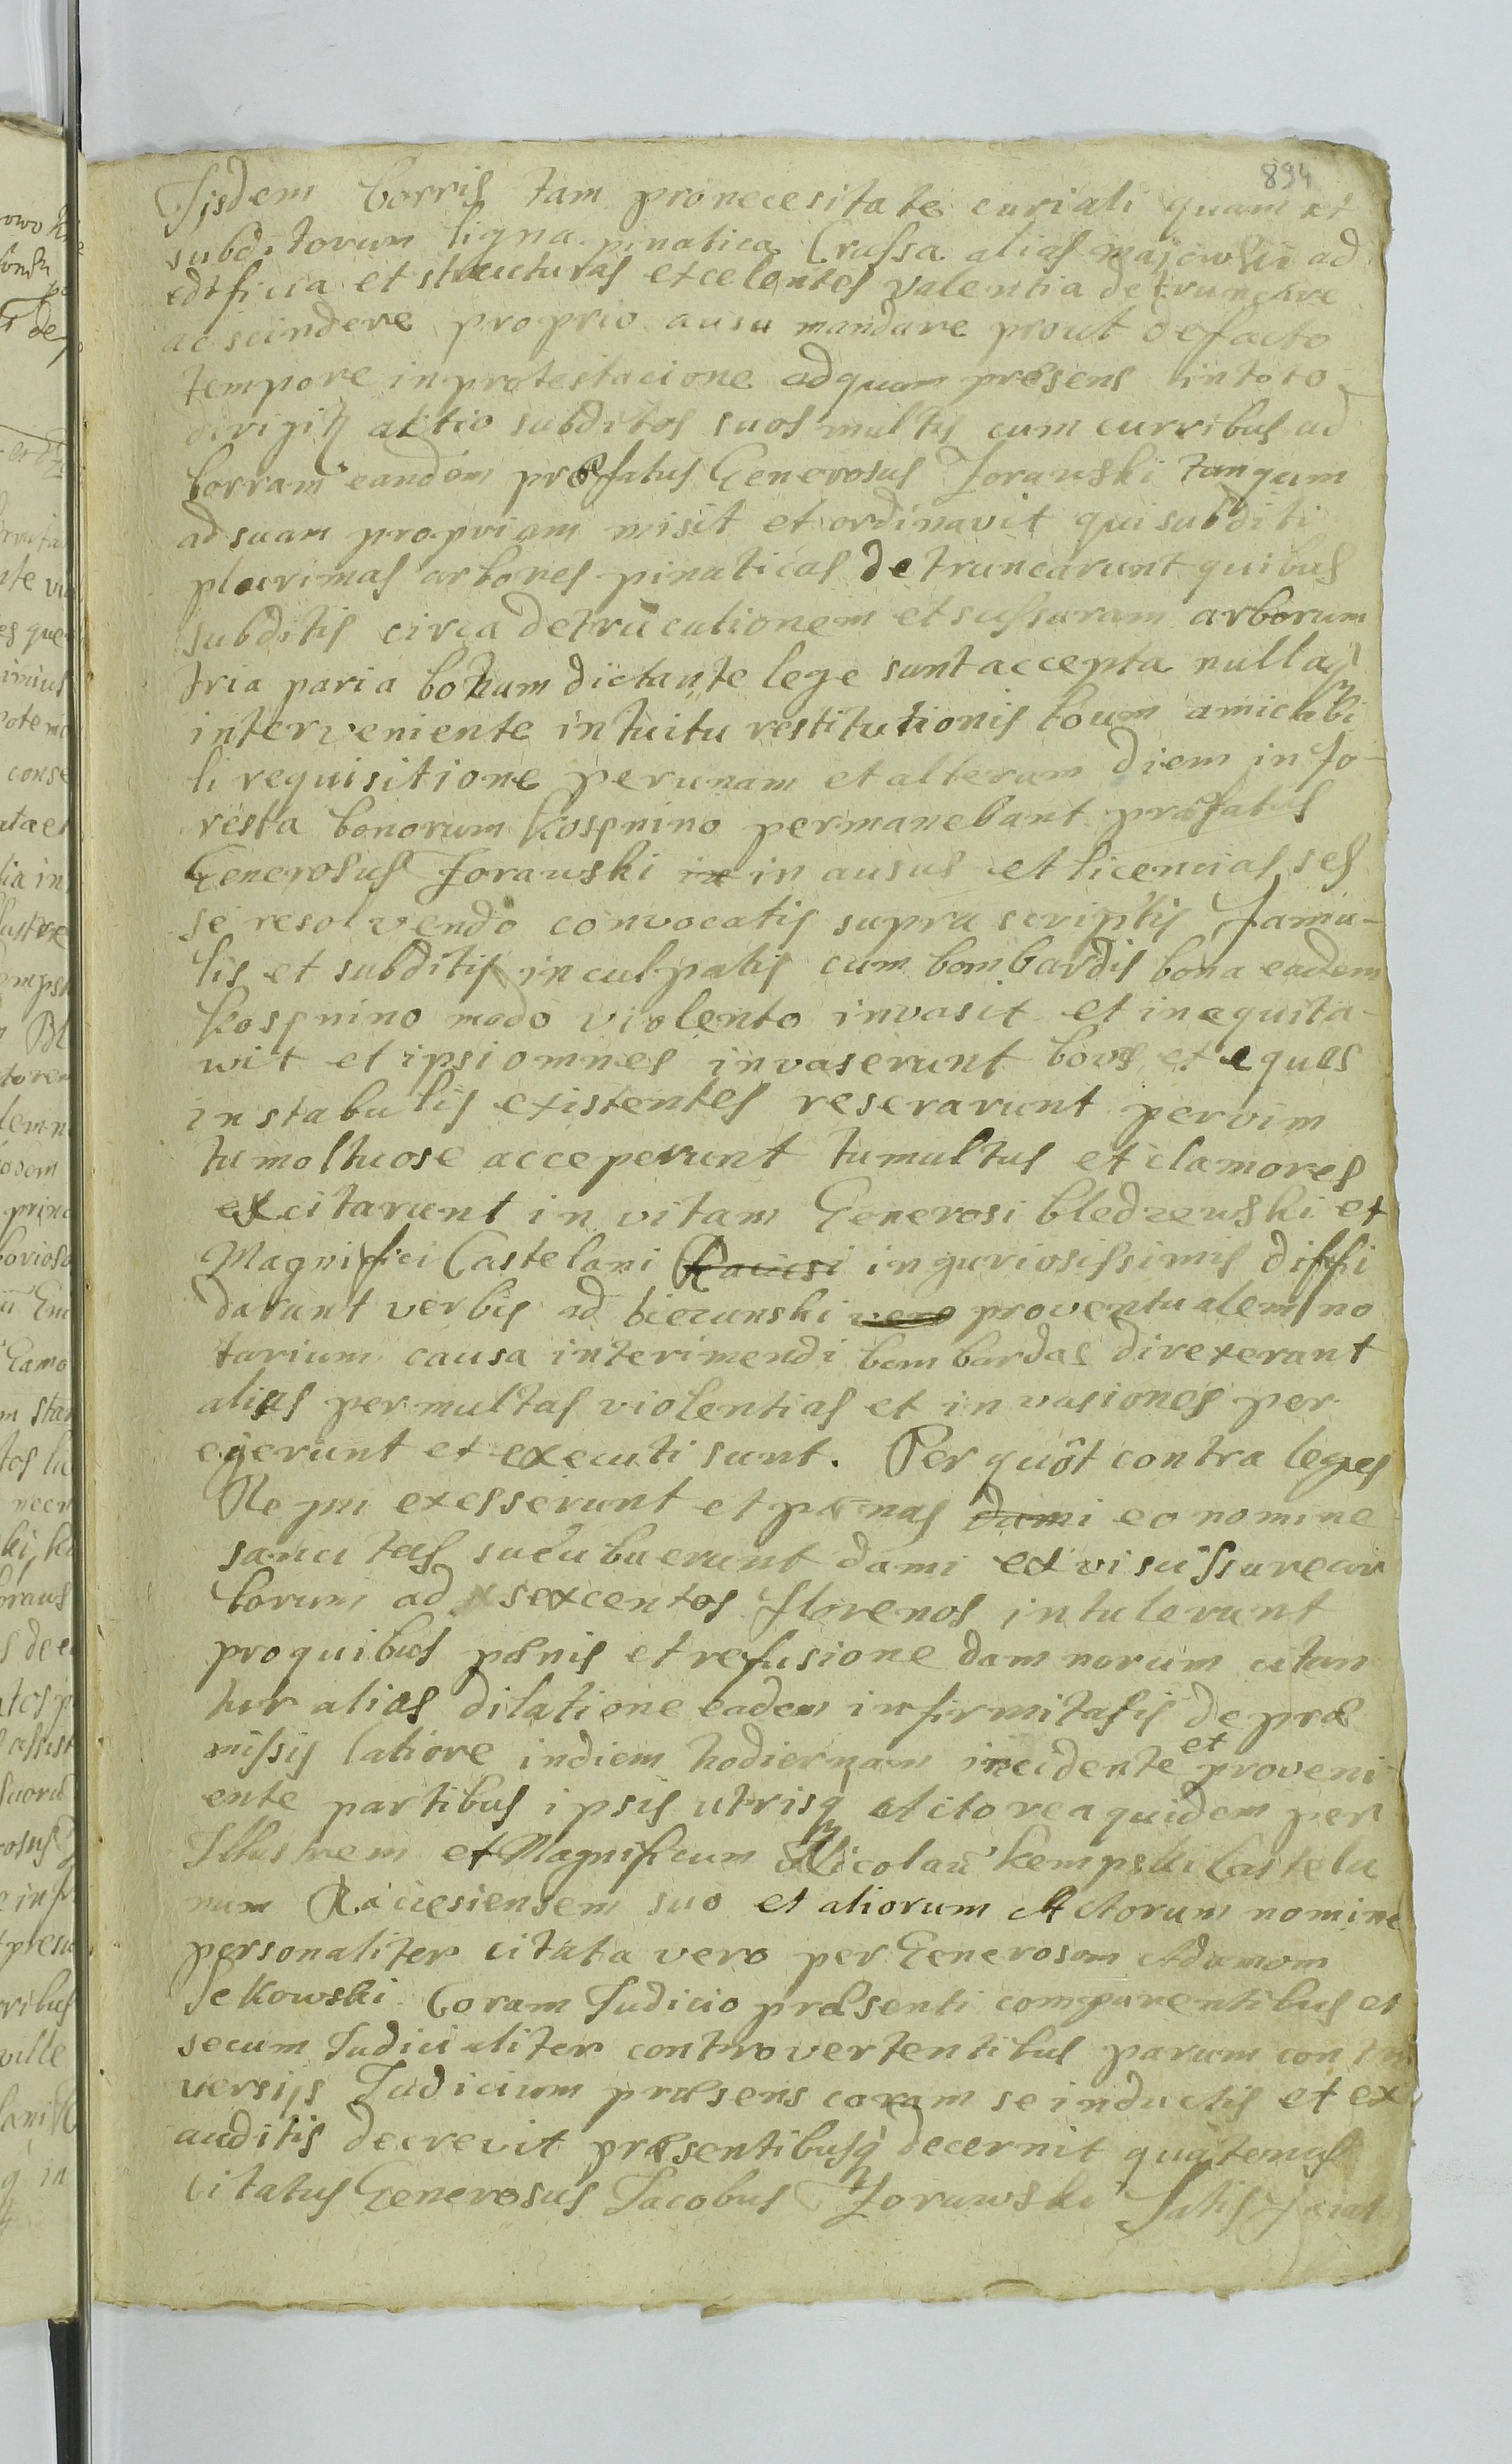 894
Iisdem borris tam pro necesitate curiali quam et
subditorum ligna pinatica Crassa alias ad
edificia et structuras excelentes valentia detruncare
ac scindere proprio ausu mandare prout defacto
tempore inprotestacione adquam præsens intoto
dirigitur aktio subditos suos multis cum curribus ad
borram eandem præfatus Generosus Zorawski tanqum
ad suam propriam misit et ordinavit qui subditi
plurimas arbores pinaticas detruncarunt quibus
subditis circa detrucationem et sussuram arborum
tria paria bohum dictante lege sunt accepta nullaq
interveniente intuitu restitutionis boum amicabi
li requisitione per unam et alteram diem in fo-
resta bonorum Kospnino permanebant præfatus
Generosus Zorawski in in ausus et licencias ses
se resolvendo convocatis supra scriptis famu-
lis et subditis inculpatis cum bombardis bona eadem
Kospnino modo violento invasit et inequita-
wit et ipsi omnes invaserunt boves et eques
in stabulis existentes reserarunt per vim
tumoltuose acceperunt tumultus et clamores
excitarunt in vitam Generosi bledzewski et
Magnifici Castelani Raciesi inguriosissimis diffi
darunt verbis ad biezunski vero proventualem no
tarium causa interimendi bombardas direxerant
alias per multas violentias et invasiones per
egerunt et executi sunt. Per quôt contra leges
Regni exesserunt et pænas dami eo nomine
sancitas sucubuerunt dami ex vi sussure ar
borum ad x sexcentos florenos intulerunt
pro quibus pænis et refusione damnorum citan
tur alias dilatione eadem infirmitatis de præ
missis latiore indiem hodiernam incidente et proveni
ente partibus ipsis utrisq Actorea quidem per
Illustrem et Magnificum Nicolaū Kempski Castela
num Raciesiensem suo et aliorum Actorum nomine
personaliter citata vero per Generosom Adamom
Sekowski Coram Iudicio præsenti comparentibus et
secum Iudicialiter controvertentibus parium contro
versiis Iudicium præsens coram se inductis et ex
auditis decrevit præsentibusq decernit quatenus
Citatus Generosus Iacobus Zorawski Satis faciat